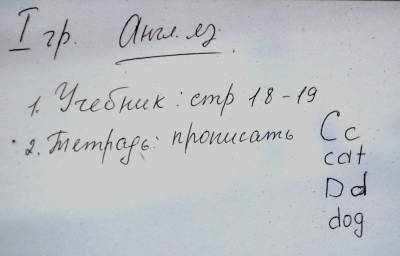 I гр. Англ. яз.
1. Учебник: стр 18-19
2. Тетрадь: прописать Cc
cat
Dd
dog